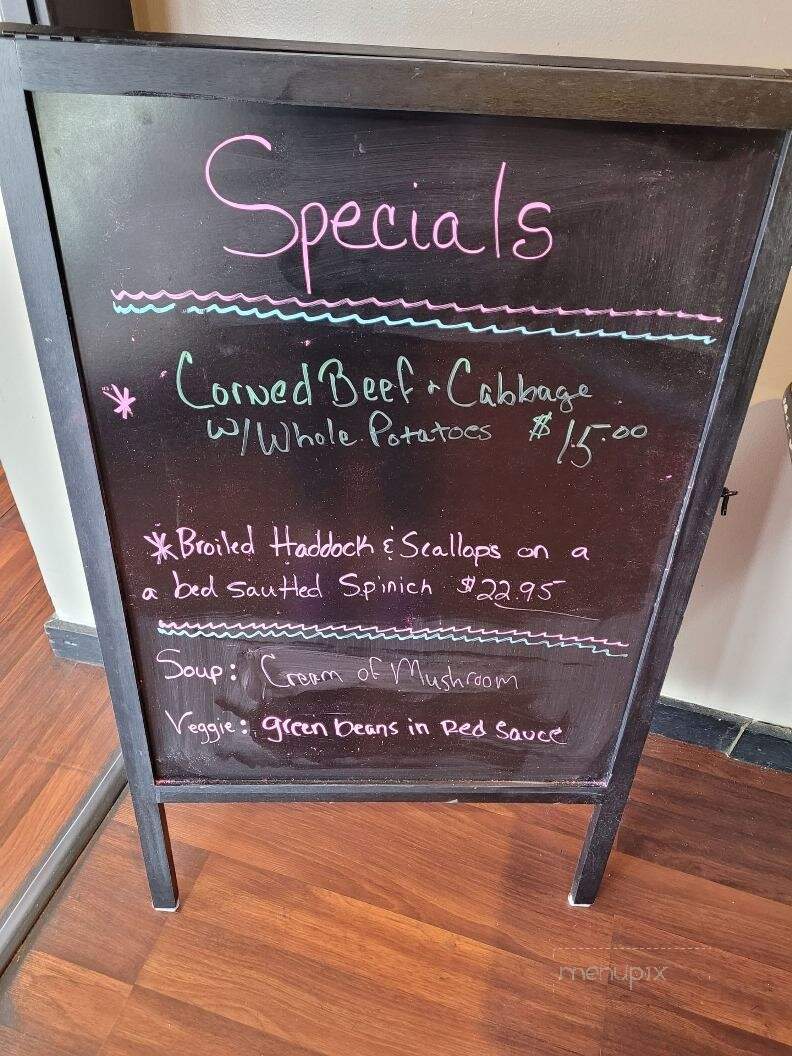 Specials
* Corned Beef & Cabbage
w/ Whole Potatoes $15.00
* Broiled Haddock & Scallops on a
a bed sautted Spinich $22.95
Soup: Cream of Mushroom
Veggie: green beans in Red Sauce
menupix